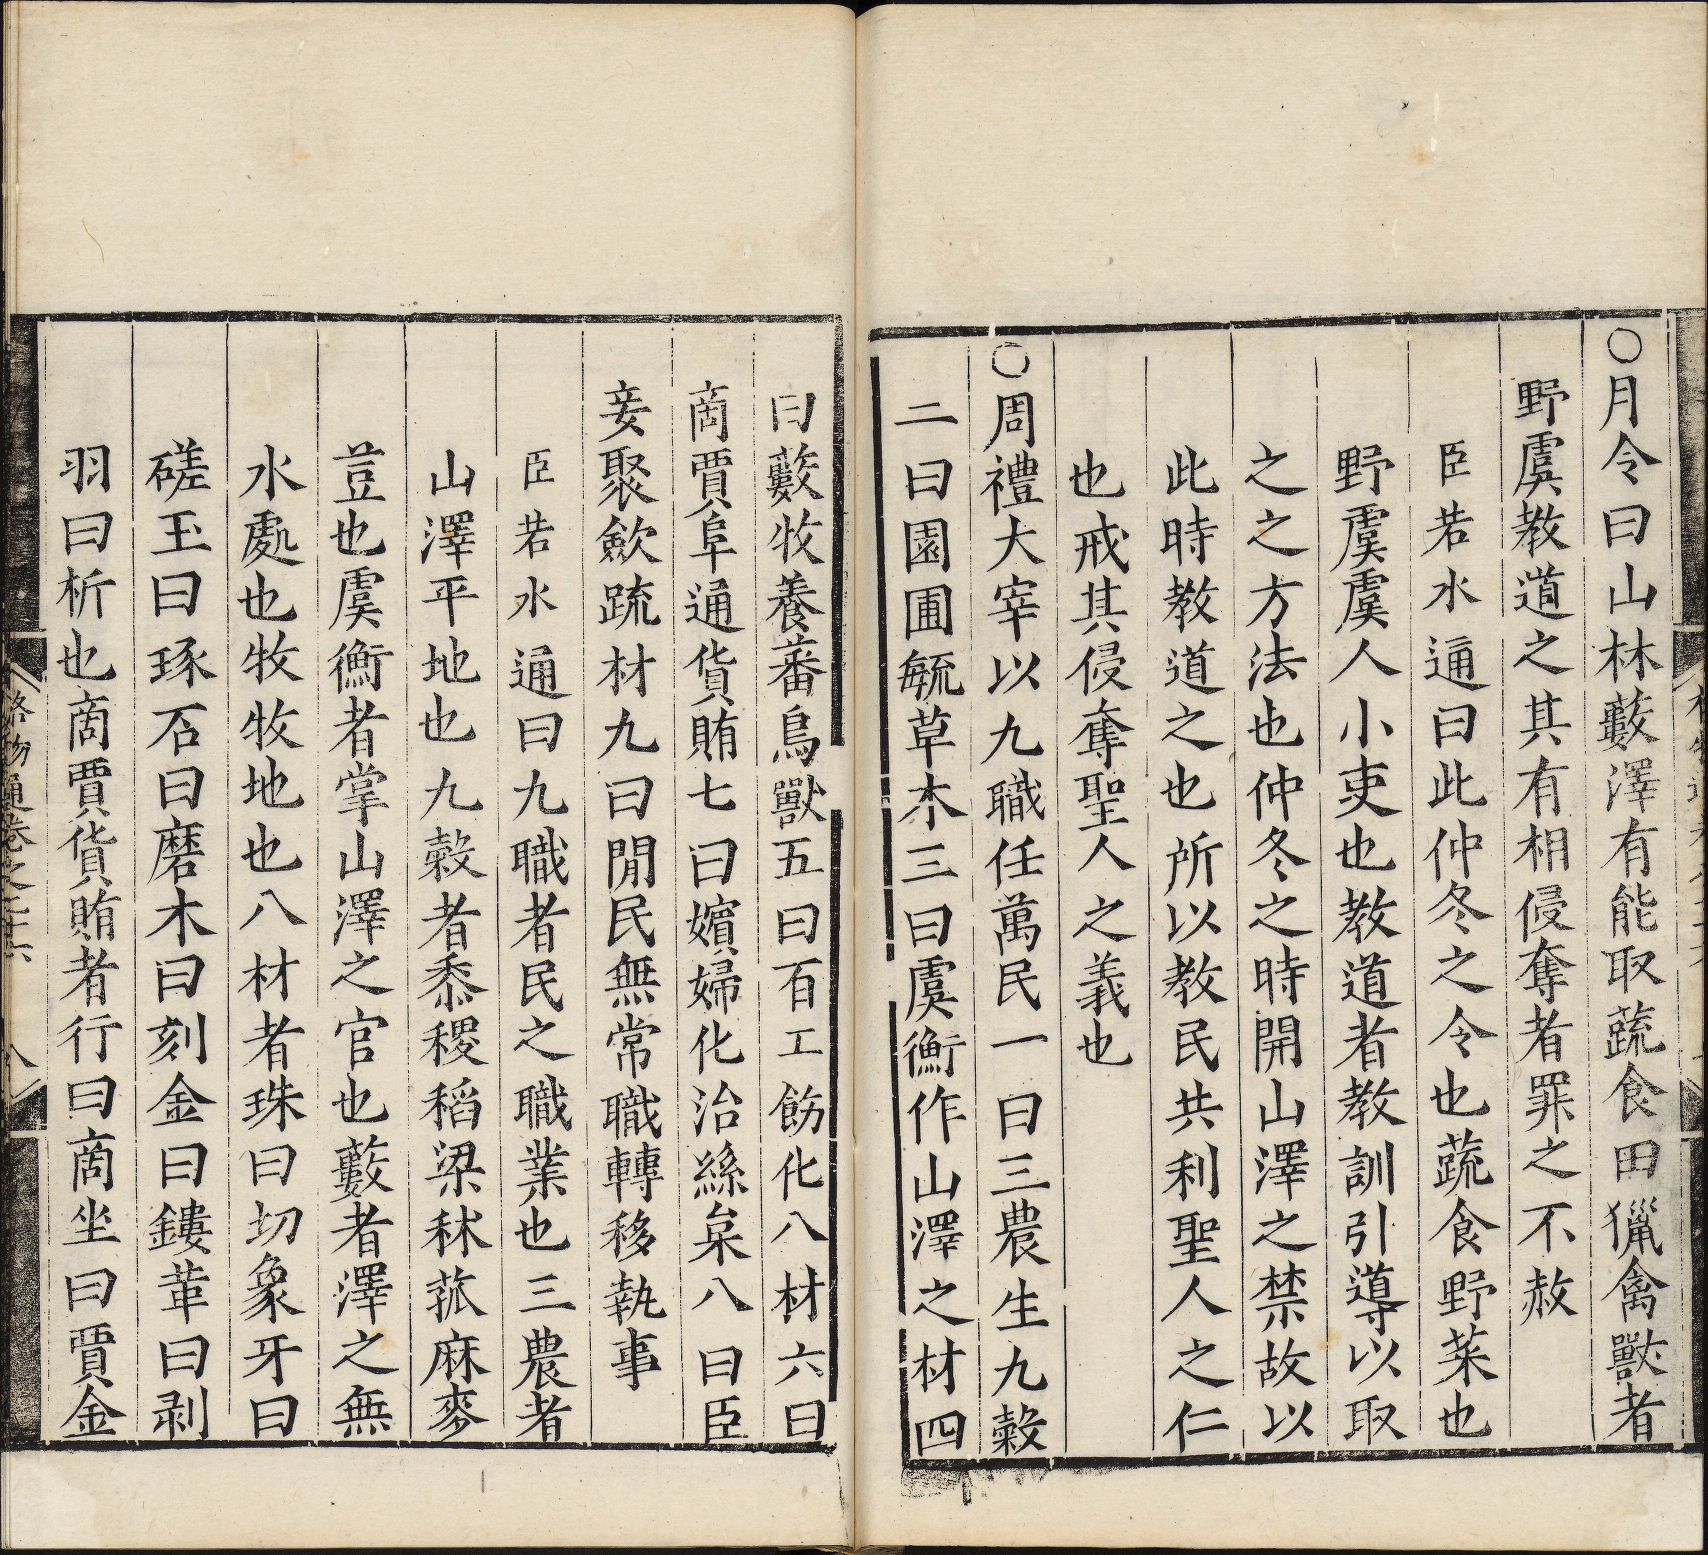 〇月令曰山林藪澤有能取蔬食田獵禽獸者
野虞教道之其有相侵奪者罪之不赦
臣若水通曰此仲冬之令也蔬食野菜也
野虞虞人小吏也教道者教訓引導以取
之之方法也仲冬之時開山澤之禁故以
此時教道之也所以教民共利聖人之仁
也戒其侵奪聖人之義也
〇周禮大宰以九職任萬民一曰三農生九穀
二曰園圃毓草木三曰虞衡作山澤之材四
曰藪牧養蕃鳥獸五曰百工飭化八材六曰
商賈阜通貨賄七曰嬪婦化治絲枲八曰臣
妾聚歛疏材九曰閒民無常職轉移執事
臣若水通曰九職者民之職業也三農者
山澤平地也九穀者黍稷稻粱秫菰麻麥
荳也虞衡者掌山澤之官也藪者澤之無
水處也牧牧地也八材者珠曰切象牙曰
磋玉曰琢石曰磨木曰刻金曰鏤革曰剥
羽曰析也商賈貨賄者行曰商坐曰賈金
格物通卷之二十六 八